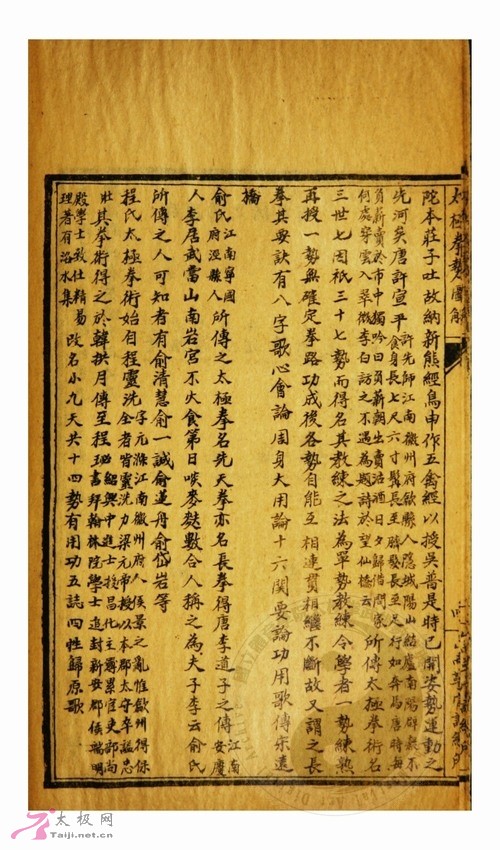 太極拳勢圖解
陀本莊子吐故納新熊經鳥申作五禽經以授吳普是時已開姿勢運動之
先河矣唐許宣平
許先師江南徽州府歙縣人隱城陽山結廬南陽辟穀不
食身長七尺六寸髯長至臍髮長至足行如奔馬唐時每
負薪賣於市中獨吟曰負薪朝出賣沽酒日夕歸借問家
何處穿雲入翠微李白訪之不遇為題詩於望仙橋云
所傳太極拳術名
三世七因祇三十七勢而得名其教練之法為單勢教練令學者一勢練熟
再授一勢無確定拳路功成後各勢自能互相連貫相繼不斷故又謂之長
拳其要訣有八字歌心會論周身大用論十六關要論功用歌傳宋遠
橋
俞氏
江南寧國
府涇縣人
所傳之太極拳名先天拳亦名長拳得唐李道子之傳
江南
安慶
人李居武當山南岩宮不火食第日啖麥麩數合人稱之為夫子李云俞氏
所傳之人可知者有俞清慧俞一誠俞蓮舟俞岱岩等
程氏太極拳術始自程靈洗
字元滌江南徽州府人侯景之亂惟歙州得保
全者皆靈洗力梁元帝授以本郡太守卒謚忠
壯其拳術得之於韓拱月傳至程珌
紹興中進士授昌化主簿累官吏部尚
書拜翰林院學士追封新安郡侯端明
殿學士致仕精易
理著有洺水集
改名小九天共十四勢有用功五誌四性歸原歌
太极网
Taiji.net.cn